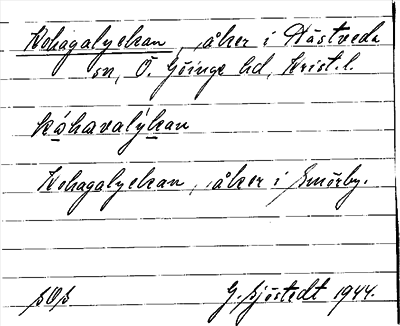 Kohagalyckan, åker i Nästveda
sn, Ö. Göinge hd, Krist. l.
kóhavalýkan
Kohagalyckan, åker i Smörby.
G. Sjöstedt 1944.